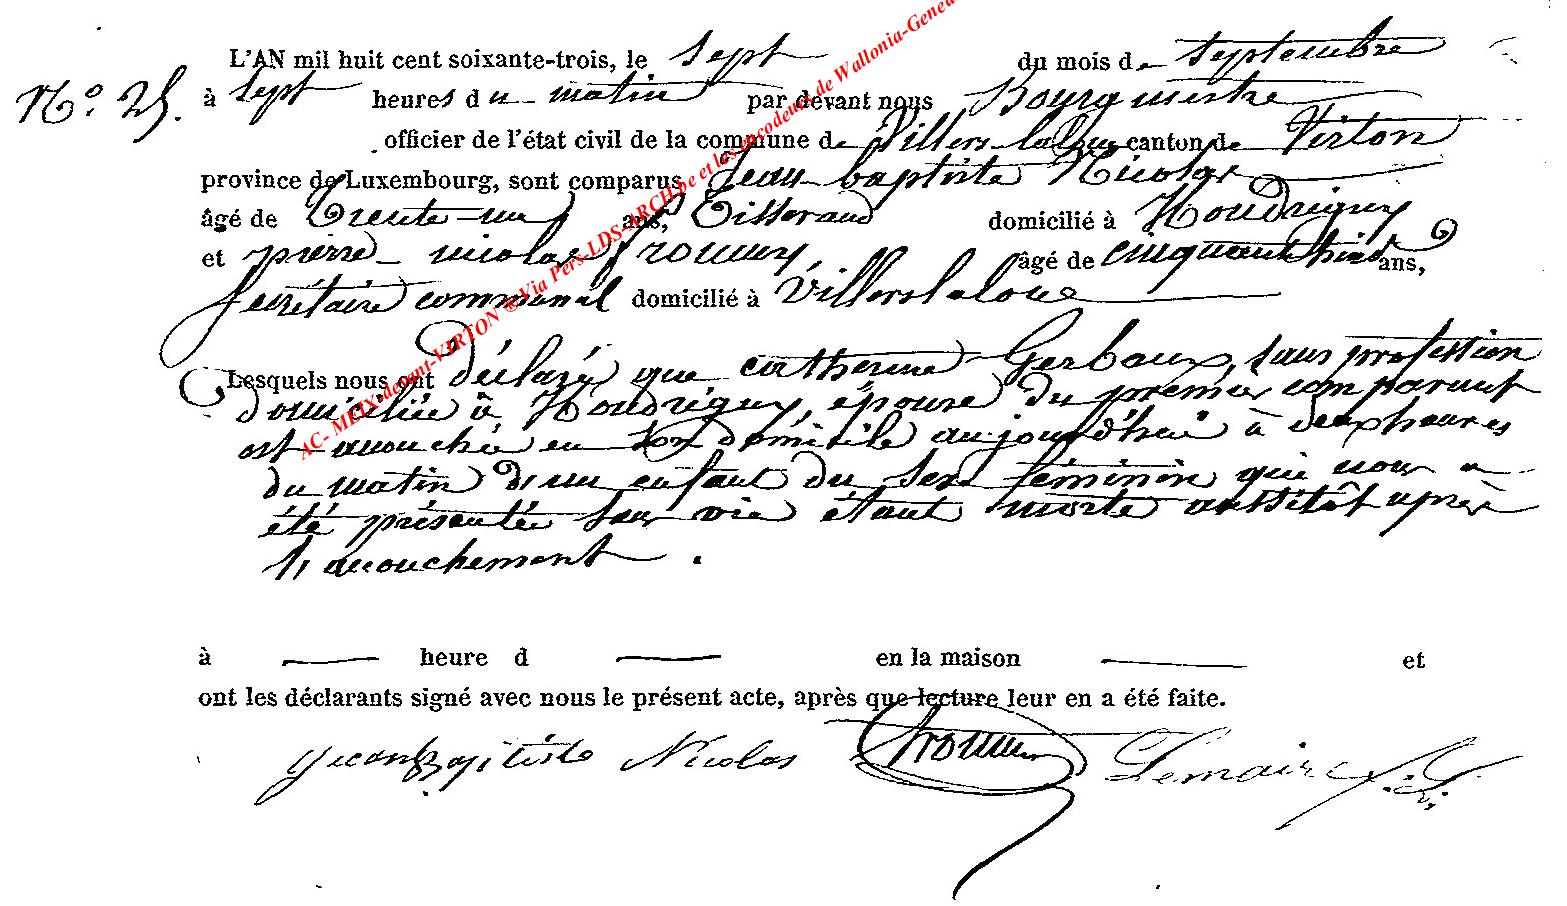 L'AN mil huit cent soixante-trois, le sept du mois de septembre
N.o 25. à sept heures du matin par devant nous Bourgmestre
officier de l'état civil de la commune de Villers-la-Loue canton de Virton
province de Luxembourg, sont comparus, Jean baptiste Nicolas
âgé de trente-un ans, Tisserand domicilié à Houdrigny
et pierre nicolas âgé de ans,
Secrétaire communal domicilié à Villerslaloue
Lesquels nous ont déclaré que catherine Gerbaux, sans profession
domiciliée à Houdrigny, épouse du premier comparant
est accouchée en son domicile aujourd'hui à deux heures
du matin d'un enfant du sexe féminin qui nous a
été présentée sans vie étant morte aussitôt après
l'accouchement.
à heure d en la maison et
ont les déclarants signé avec nous le présent acte, après que lecture leur en a été faite.
Jean Baptiste Nicolas Lemaire
AC- MEIX-devant-VIRTON ® Via Pers-LDS-ARCH.be et les encodeurs de Wallonia-Genea